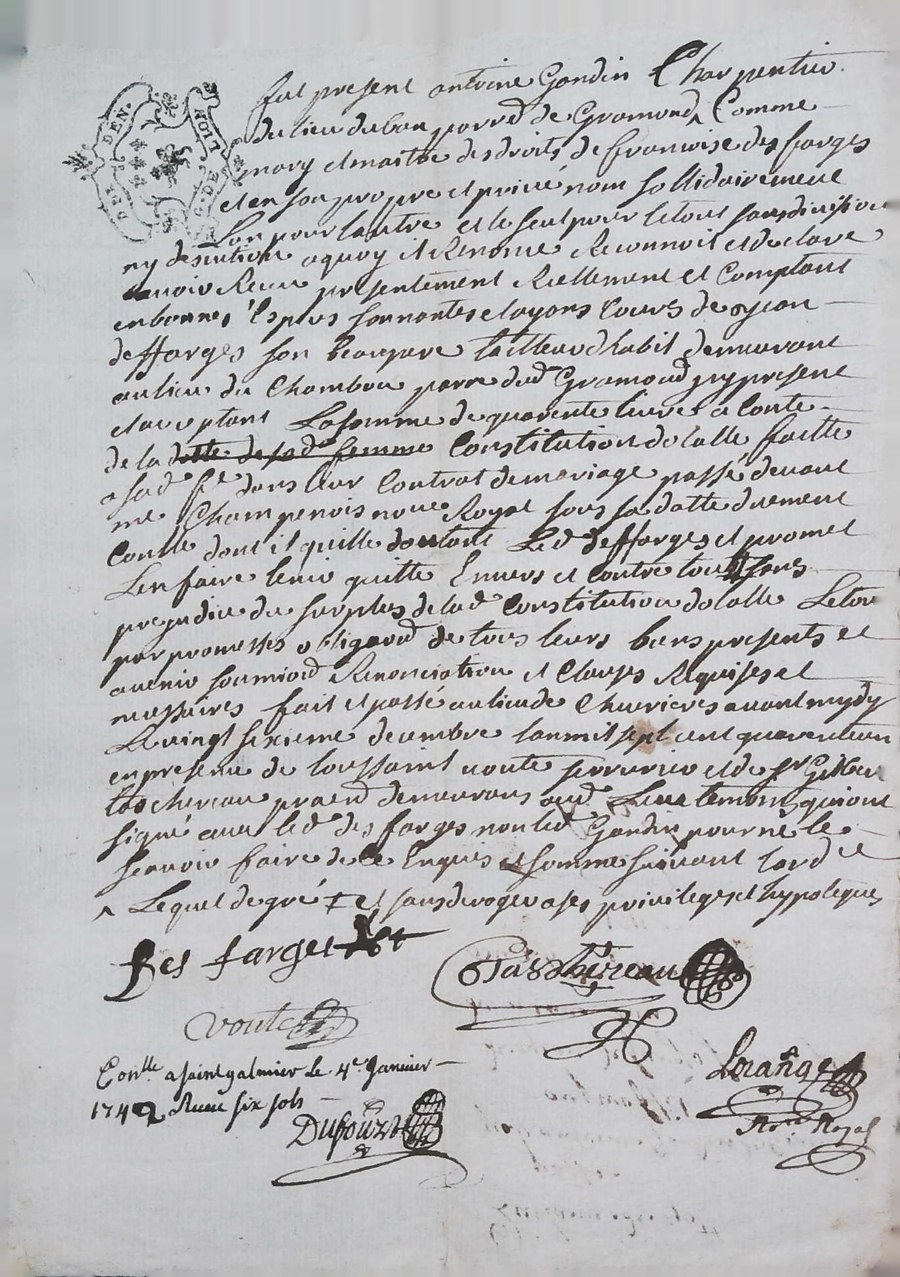 DEN.
G. DE LION
fut present antoine Gondin Charpentier
du lieu du bau parre de Gramond ^ Comme
mary et maitre des droits de francoise des farges
et en son propre et privé nom sollidairement
Lun pour lautre et le seul pour le tout sans division
ny discution aquoy il Renonce Reconnoit et declare
avoir Receu presentement Reellement et Comptant
en bonnes Espices sonnantes et ayans Cours de Jean
deffarges son beaupere tailleur dhabit demeurant
au lieu du Chambou parre dud Gramond icy present
et acceptant La somme de quarente livres a Conte
de la dotte de sad femme Constitution dotalle faitte
a sad fe dans leur Contrat de mariage passé devant
me Champenois nore Royal sous sa datte duement
Conllé dont il quitte dautant Led deffarges et promet
Len faire tenir quitte Envers et Contre tous sans
prejudice du surplus de lad Constitution dotalle Le tou
par promesses obligaod de tous leurs biens presents et
avenir soumiod Renonciation et Clauses Requises et
necessaires fait et passé au lieu de Chevrieres avant mydy
Le vingt sixieme decembre lan mil sept cent quarente un
en presence de toussaint voute serrurier et de sr
tascherau demeurans aud Lieu temoins qui ont
signé avec led des farges non led Gondin pour ne le
scavoir faire de ce Enquis et sommé suivant lord ce
^ Lequel de gré ‡ et sans deroger a ses privileges et hypoteques
Des farges
Taschereau
voute
Conlle a saint galmier le 4e Janvier
1742 Receu six sols
Dufour
Loränge
Nore Royal